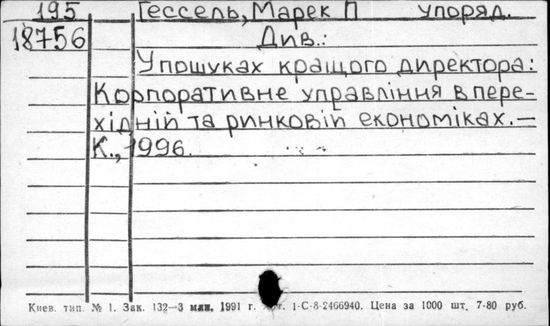 195 Гессель, Марек П упоряд.
18756 Див.:
У пошуках кращого директора:
Корпоративне управління в пере-
хідній та ринковій економіках.—
К., 1996.
Киев. тип. № 1. Зак. 132—3 млн. 1991 г. 1-С-8-2466940. Цена за 1000 шт. 7-80 руб.